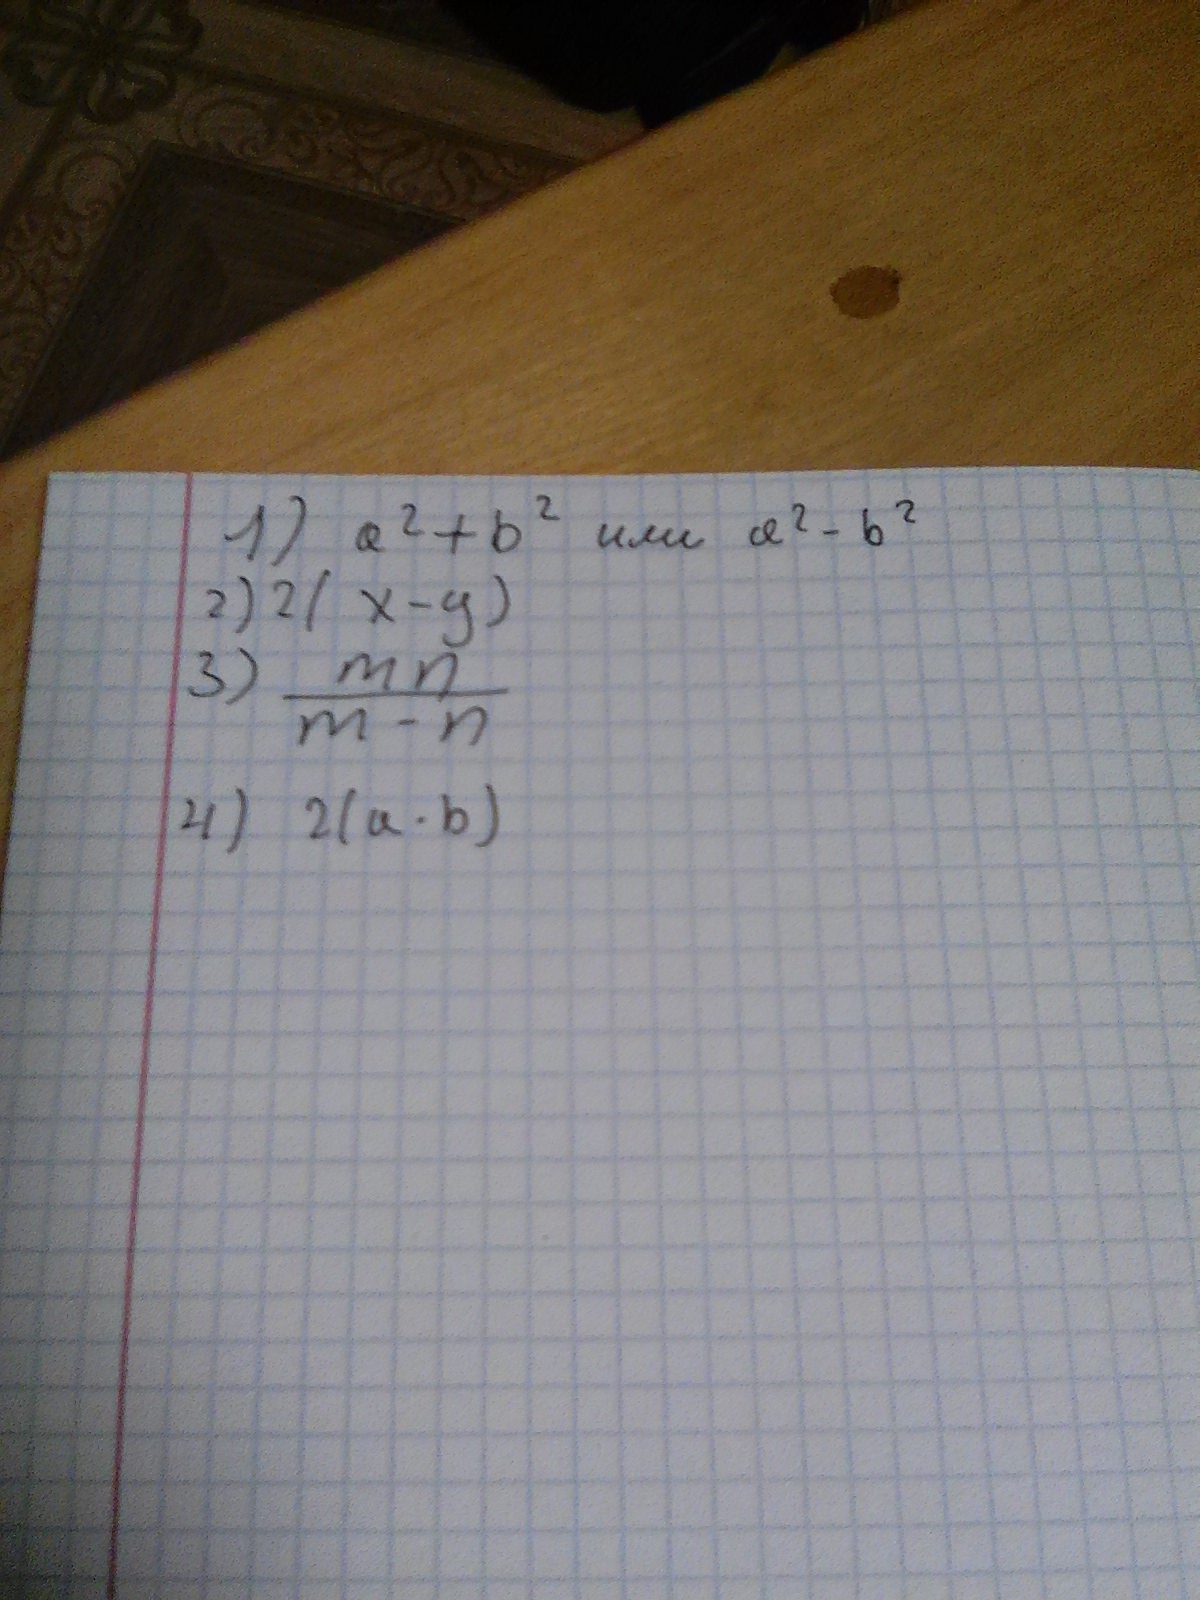 1) a² + b² или a² - b²
2) 2( x - y)
3) \frac{mn}{m - n}
4) 2(a · b)